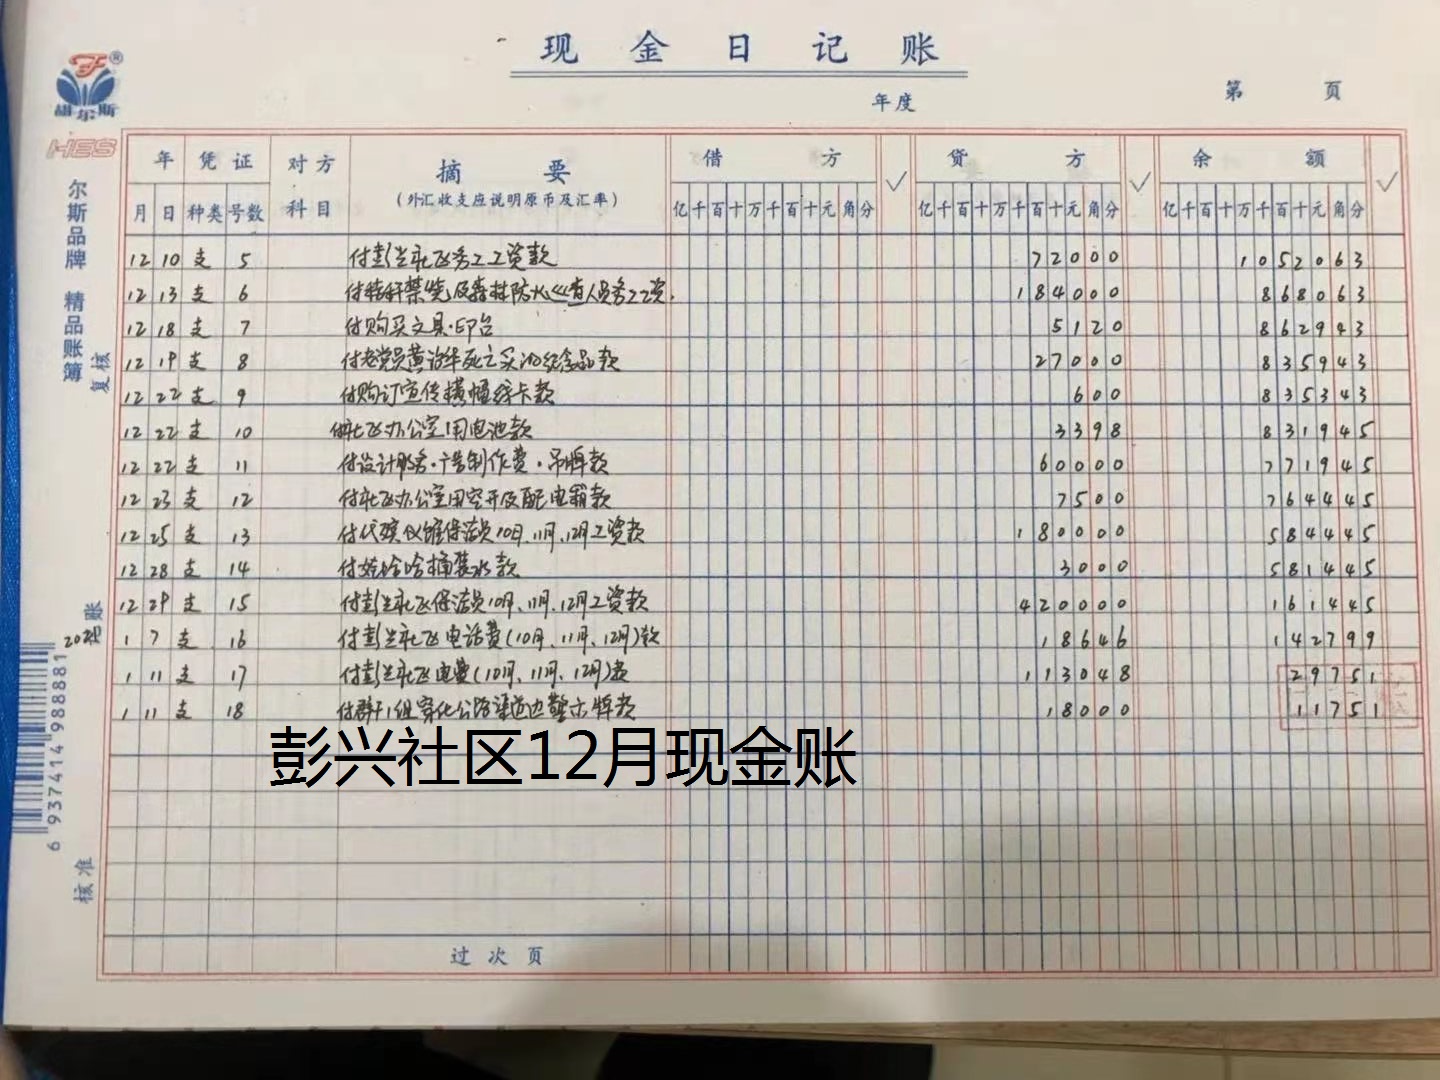 现金日记账
年度
第 页
胡尔斯
HES
尔斯品牌 精品账簿
复核
记账
核准
6 937414 988881
年 凭证 对方科目 摘要 借方 ✓ 贷方 ✓ 余额 ✓
(外汇收支应说明原币及汇率)
月 日 种类 号数 亿千百十万千百十元角分 亿千百十万千百十元角分 亿千百十万千百十元角分
12 10 支 5 付彭兴社区务工工资款 72000 1052063
12 13 支 6 付秸秆禁烧及森林防火巡查人员务工工资. 184000 868063
12 18 支 7 付购买文具.印台 5120 862943
12 19 支 8 付老党员黄治华死亡买 纪念品款 27000 835943
12 22 支 9 付购订宣传横幅 卡款 600 835343
12 22 支 10 付社区办公室用电池款 3398 831945
12 22 支 11 付设计服务.广告制作费.吊牌款 60000 771945
12 23 支 12 付社区办公室用空开及配电箱款 7500 764445
12 25 支 13 付代殡仪馆保洁员10月、11月、12月工资款 180000 584445
12 28 支 14 付娃哈哈桶装水款 3000 581445
12 29 支 15 付彭兴社区保洁员10月、11月、12月工资款 420000 161445
1 7 支 16 付彭兴社区电话费(10月、11月、12月)款 18646 142799
1 11 支 17 付彭兴社区电费(10月、11月、12月)款 113048 29751
1 11 支 18 付群力组 化公路渠道边警示牌款 18000 11751
彭兴社区12月现金账
过次页